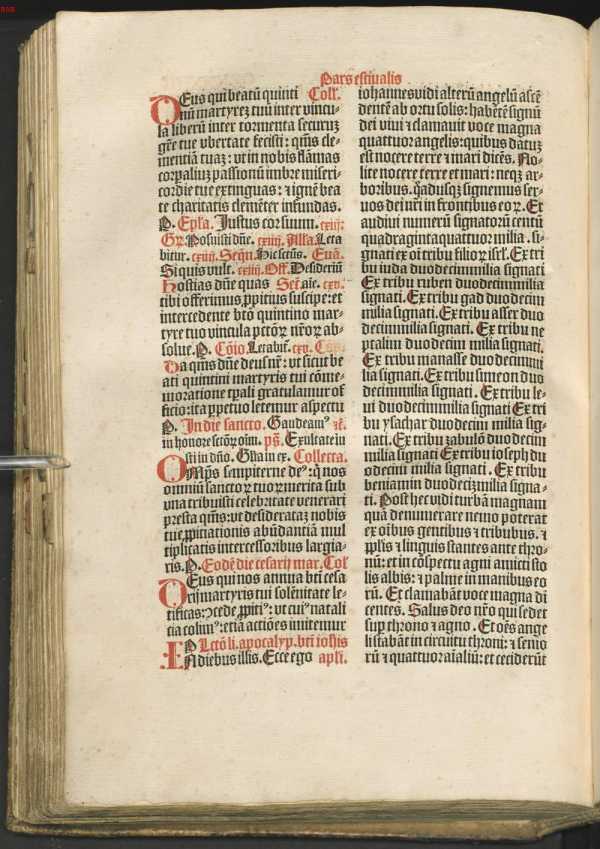 Pars estiualis
DEus qui beatū quinti Coll'.
nū martyrez tuū inter vincu-
la liberū inter tormenta securuz
gēte tue vbertate fecisti: q̄ms cle-
mentiā tuaz: vt in nobis flāmas
corpaliuz passionū imbre miseri-
cordie tue extinguas: ⁊ igne bea
te charitatis clemēter infundas.
P. Epl'a. Justus cor suum. cxiij:
Gr̄. Posuisti dn̄e. cxiiij. All'a. Leta
bitur. cxiiij. Seqn̄. Hic sct̄us. Euā.
Si quis vult. cxiiij. Off. Desideriū
Hostias dn̄e quas Secr̄. aīe. cxv.
tibi offerimus, ꝓpitius suscipe: et
intercedente bt̄o quintino mar-
tyre tuo vincula pctōꝝ nr̄oꝝ ab-
solue. P. Cōio. Letabit̄. cxv. Cōp̄.
Da q̄ms dn̄e deus nr̄: vt sicut be
ati quintini martyris tui cōme-
moratione tp̄ali gratulamur of
ficio: ita ꝑpetuo letemur aspectu
P. In die sancto. Gaudeam⁹ ⁊c̄.
in honore sctōꝝ oīm. ps̄. Exultate iu
sti in dn̄o. Gl'ia in ex. Collecta.
OMp̄s sempiterne de⁹: q̄ nos
omniū sanctoꝝ tuoꝝ merita sub
vna tribuisti celebritate venerari
presta q̄ms: vt desideratāz nobis
tue ꝓpitiationis abūdantiā mul
tiplicatis intercessoribus largia-
ris. P. Eodē die cesarij mar. Col
DEus qui nos annua bt̄i cesa
rij martyris tui solēnitate le-
tificas: ꝯcede ꝓpiti⁹: vt cui⁹ natali
tia colim⁹: etiā actiōes imitemur
P Lctō li. apocalyp. bt̄i iohis
IN diebus illis. Ecce ego apl'i.
iohannes vidi alterū angelū ascē
dentē ab ortu solis: habētē signū
dei viui ⁊ clamauit voce magna
quattuor angelis: quibus datuz
est nocere terre ⁊ mari dicēs. No-
lite nocere terre et mari: neqz ar-
boribus. q̄adusqz signemus ser-
uos dei nr̄i in frontibus eoꝝ. Et
audiui numerū signatorū centū
quadraginta quattuor milia. si-
gnati ex oī tribu filioꝝ isrl. Ex tri
bu iuda duodecim milia signati
Ex tribu ruben duodecim milia
signati. Ex tribu gad duodecim
milia signati. Ex tribu asser duo
decim milia signati. Ex tribu ne
ptalim duodecim milia signati.
Ex tribu manasse duodecim mi
lia signati. Ex tribu simeon duo
decim milia signati. Ex tribu le-
ui duodecim milia signati Ex tri
bu ysachar duodecim milia sig-
nati. Ex tribu zabulō duodecim
milia signati Ex tribu ioseph du
odecim milia signati. Ex tribu
beniamin duodecīz milia signa-
ti. Post hec vidi turbā magnam
quā denumerare nemo poterat
ex oībus gentibus ⁊ tribubus. ⁊
pplīs ⁊ linguis stantes ante thro-
nū: et in cōspectu agni amicti sto
lis albis: ⁊ palme in manibus eo
rū. Et clamabāt voce magna di
centes. Salus deo nr̄o qui sedet
sup throno ⁊ agno. Et oēs ange
li stabāt in circuitu throni: ⁊ senio
rū ⁊ quattuor aīaliū: et ceciderūt